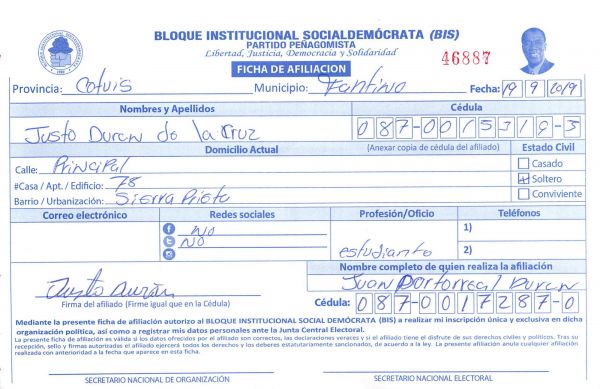 BLOQUE INSTITUCIONAL SOCIALDEMÓCRATA (BIS)
PARTIDO PEÑAGOMISTA
Libertad, Justicia, Democracia y Solidaridad
46887
FICHA DE AFILIACION
Provincia: Cotuis Municipio: Fantino Fecha: 19 9 2019
Nombres y Apellidos Cédula
Justo Duren de la Cruz 087-0015319-3
Domicilio Actual (Anexar copia de cédula del afiliado) Estado Civil
Calle: Principal Casado
#Casa / Apt. / Edificio: 78 Soltero
Barrio / Urbanización: Sierra Prieto Conviviente
Correo electrónico Redes sociales Profesión/Oficio Teléfonos
NO 1)
NO estudiante 2)
Nombre completo de quien realiza la afiliación
Juan Portorreal Duren
Firma del afiliado (Firme igual que en la Cédula) Cédula: 087-0017287-0
Mediante la presente ficha de afiliación autorizo al BLOQUE INSTITUCIONAL SOCIAL DEMÓCRATA (BIS) a realizar mi inscripción única y exclusiva en dicha
organización política, así como a registrar mis datos personales ante la Junta Central Electoral.
La presente ficha de afiliación es válida si los datos ofrecidos por el afiliado son correctos, las declaraciones veraces y si el afiliado tiene el disfrute de sus derechos civiles y políticos. Tras su
recepción, sello y firmas autorizadas el afiliado ejercerá todos los derechos y los deberes estatutariamente sancionados, de acuerdo a la ley. La presente afiliación anula cualquier afiliación
realizada con anterioridad a la fecha que aparece en esta ficha.
SECRETARIO NACIONAL DE ORGANIZACIÓN SECRETARIO NACIONAL ELECTORAL